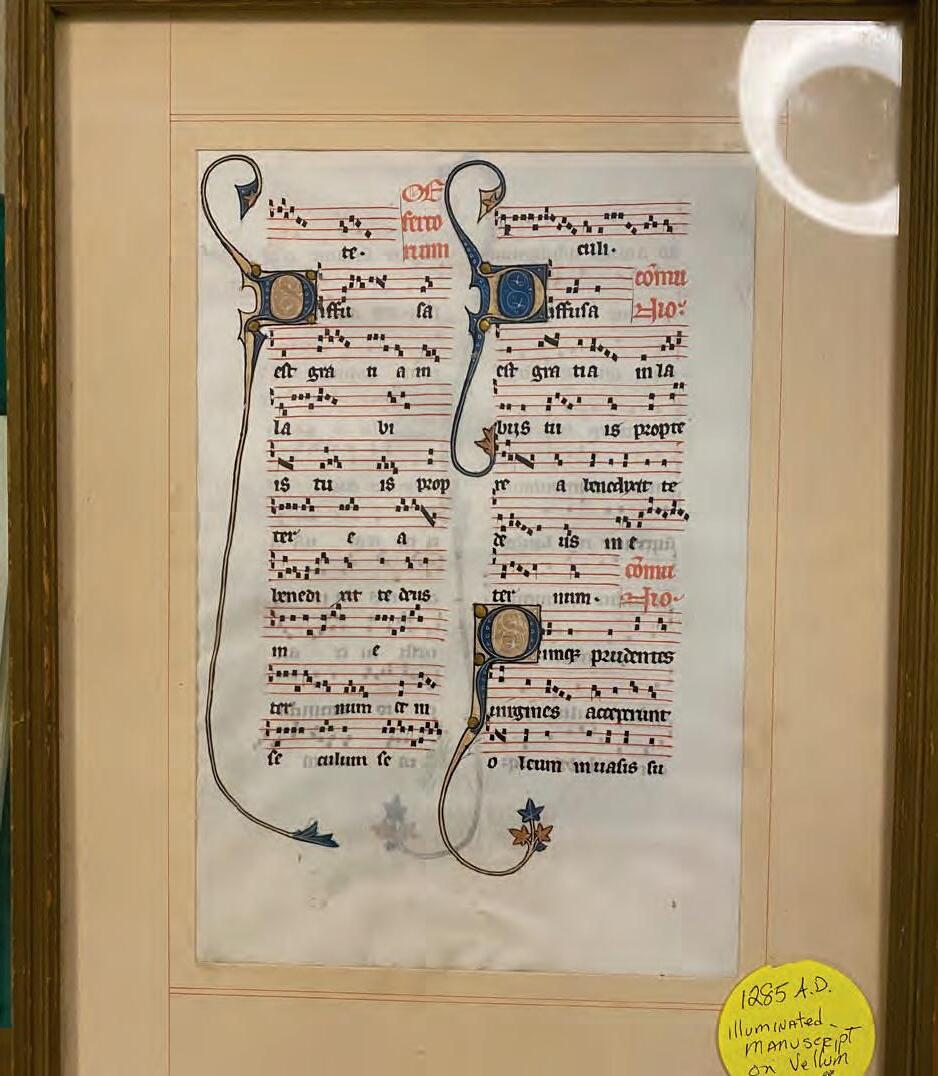 te.
Offerto
rium
Diffu sa
est gra ti a in
la bi
is tu is prop
ter e a
benedi xit te deus
in e
ter num et in
se culum se
culi.
cōmu
nio.
Diffusa
est gra tia in la
bijs tu is propte
re a benedixit te
de us in e
ter num.
cōmu
nio.
Quinqȝ prudentes
uirgines acceperunt
o leum in uasis su
1285 A.D.
Illuminated
Manuscript
on Vellum